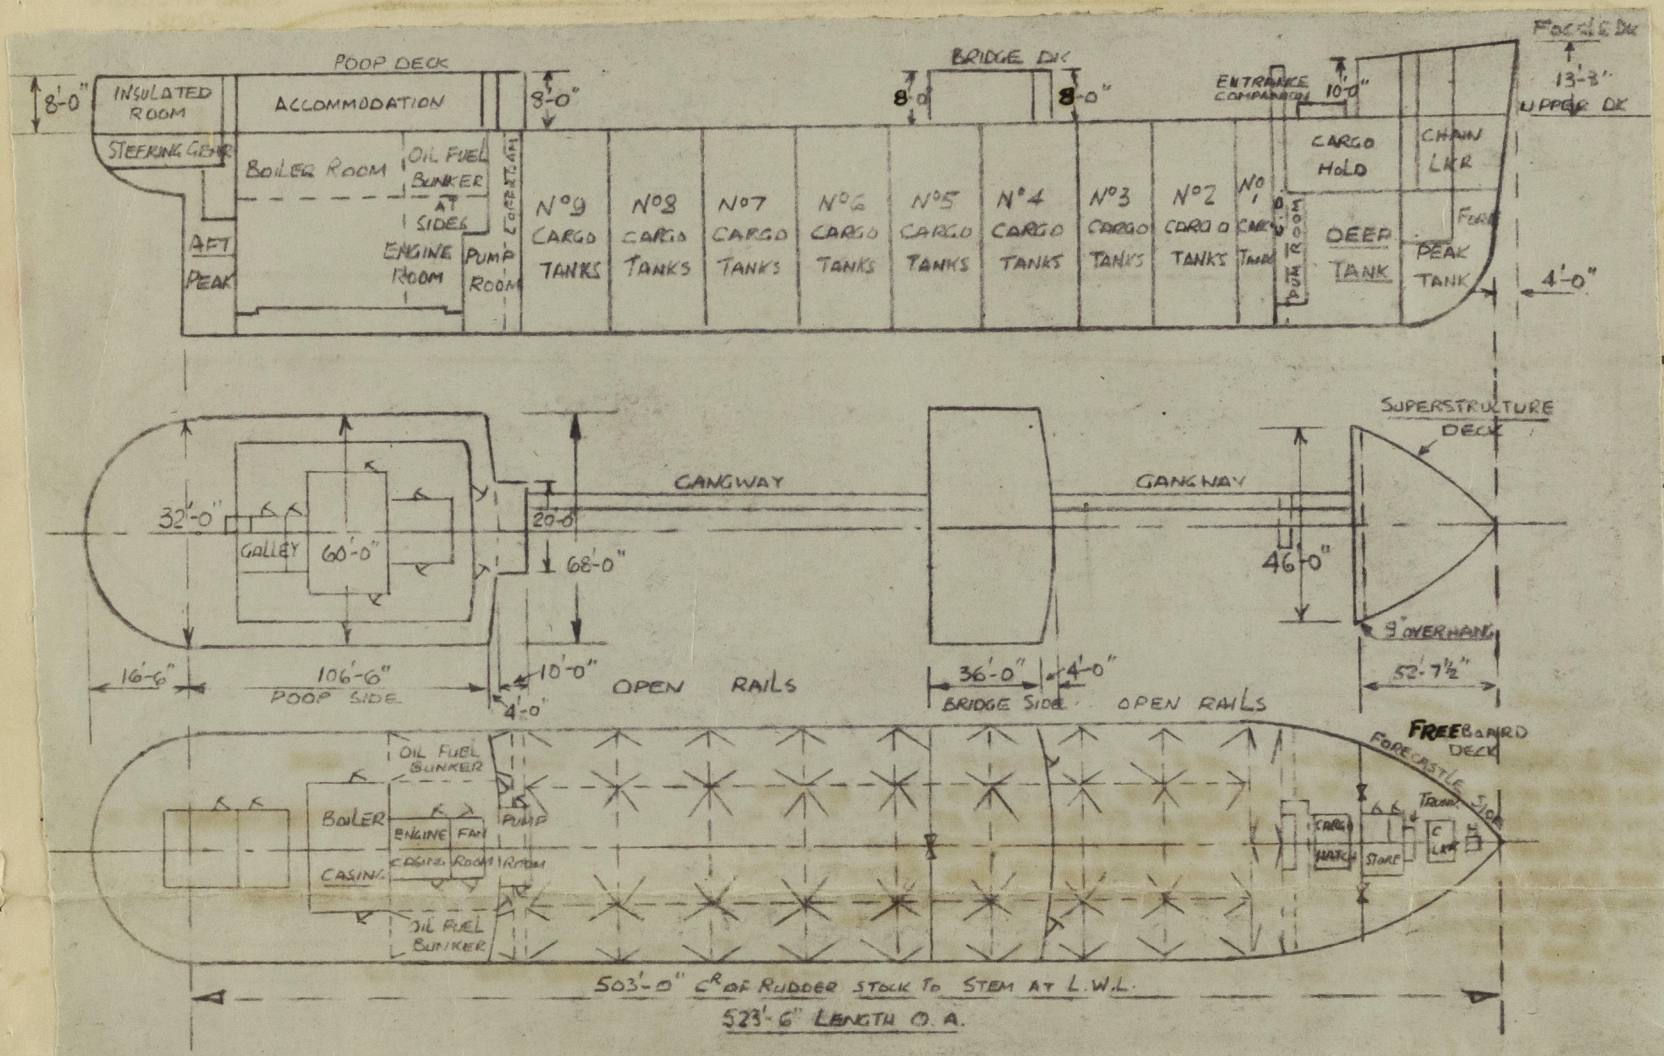 FOCSLE DK
POOP DECK
BRIDGE DK
8'-0"
INSULATED
ROOM
ACCOMMODATION
8'-0"
8'-0"
8'-0"
ENTRANCE
COMPANION
10'-0"
13'-3"
UPPER DK
STEERING GEAR
BOILER ROOM
OIL FUEL
BUNKER
AT
SIDES
COFFERDAM
CARGO
HOLD
CHAIN
LKR
AFT
PEAK
ENGINE
ROOM
PUMP
ROOM
Nº9
CARGO
TANKS
Nº8
CARGO
TANKS
Nº7
CARGO
TANKS
Nº6
CARGO
TANKS
Nº5
CARGO
TANKS
Nº4
CARGO
TANKS
Nº3
CARGO
TANKS
Nº2
CARGO
TANKS
Nº
1
CARGO
TANKS
PUM ROOM
DEEP
TANK
FORE
PEAK
TANK
4'-0"
SUPERSTRUCTURE
DECK
GANGWAY
GANGWAY
32'-0"
GALLEY
60'-0"
20'-0"
68'-0"
46'-0"
9" OVERHANG
16'-6"
106'-6"
POOP SIDE
10'-0"
4'-0"
OPEN RAILS
36'-0"
BRIDGE SIDE
4'-0"
OPEN RAILS
52'-7½"
FREEBOARD
DECK
FORECASTLE SIDE
OIL FUEL
BUNKER
BOILER
CASING
ENGINE
CASING
FAN
ROOM
PUMP
ROOM
OIL FUEL
BUNKER
CARGO
HATCH
STORE
TRUNK
C
LKR
503'-0" Cᴿ OF RUDDER STOCK TO STEM AT L.W.L.
523'-6" LENGTH O.A.